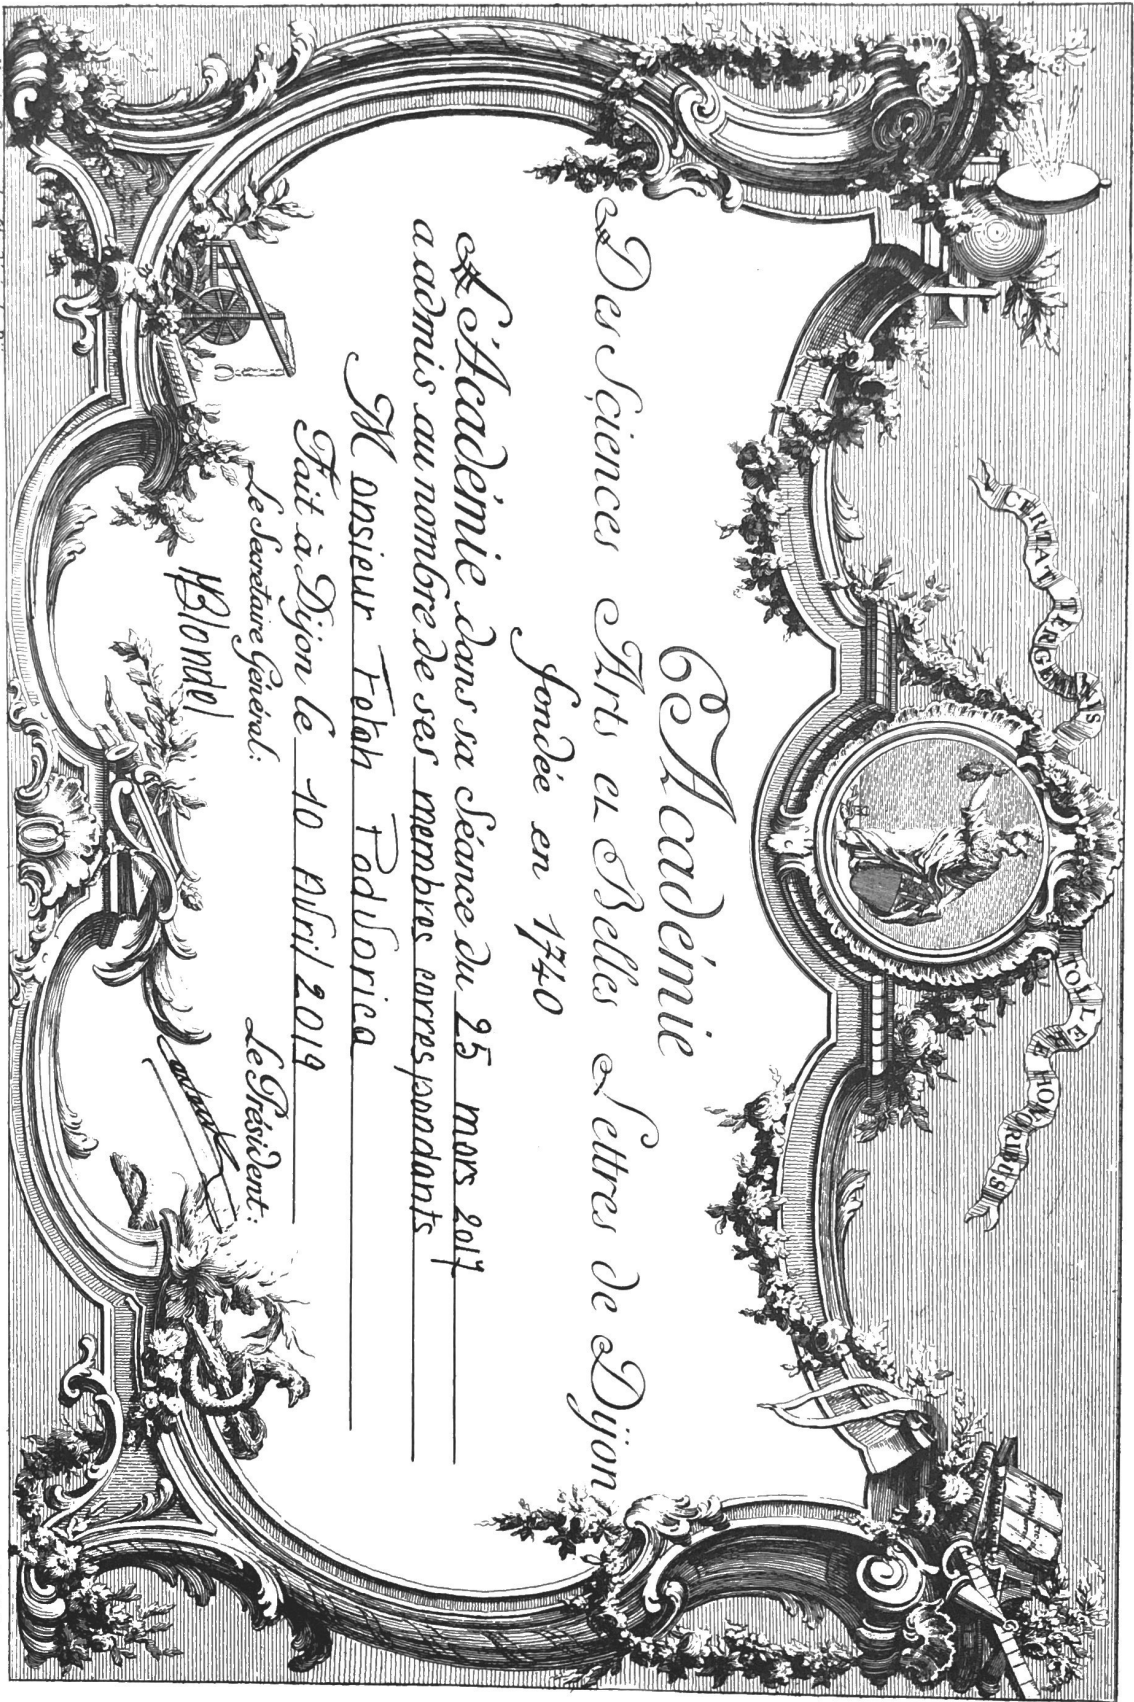 CERTAT TERGEMINIS TOLLERE HONORIBUS
Académie
Des Sciences Arts et Belles Lettres de Dijon
fondée en 1740
L'Académie dans sa Séance du 25 mars 2017
a admis au nombre de ses membres correspondants
Monsieur Fetah Padvorica
Fait à Dijon le 10 Avril 2019
Le Secretaire Général: Le Président:
MBlondel